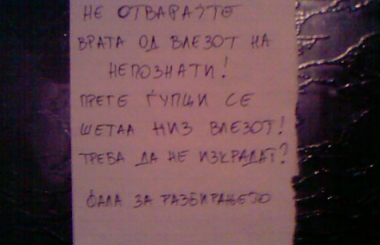 НЕ ОТВАРАЈТЕ
ВРАТА ОД ВЛЕЗОТ НА
НЕПОЗНАТИ!
ПРЕГЕ ЃУПЦИ СЕ
ШЕТАА НИЗ ВЛЕЗОТ!
ТРЕБА ДА НЕ ИЗКРАДАТ?
ФАЛА ЗА РАЗБИРАЊЕТО